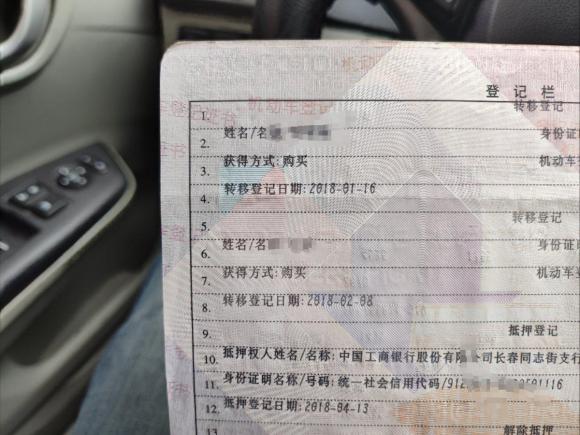 登记栏
1. 转移登记
2. 姓名/名 身份证
3. 获得方式:购买 机动车
4. 转移登记日期:2018-01-16
5. 转移登记
6. 姓名/名 身份证
7. 获得方式:购买 机动车
8. 转移登记日期:2018-02-08
9. 抵押登记
10. 抵押权人姓名/名称:中国工商银行股份有 公司长春同志街支行
11. 身份证明名称/号码:统一社会信用代码/912 01116
12. 抵押登记日期:2018-04-13
13 解除抵押